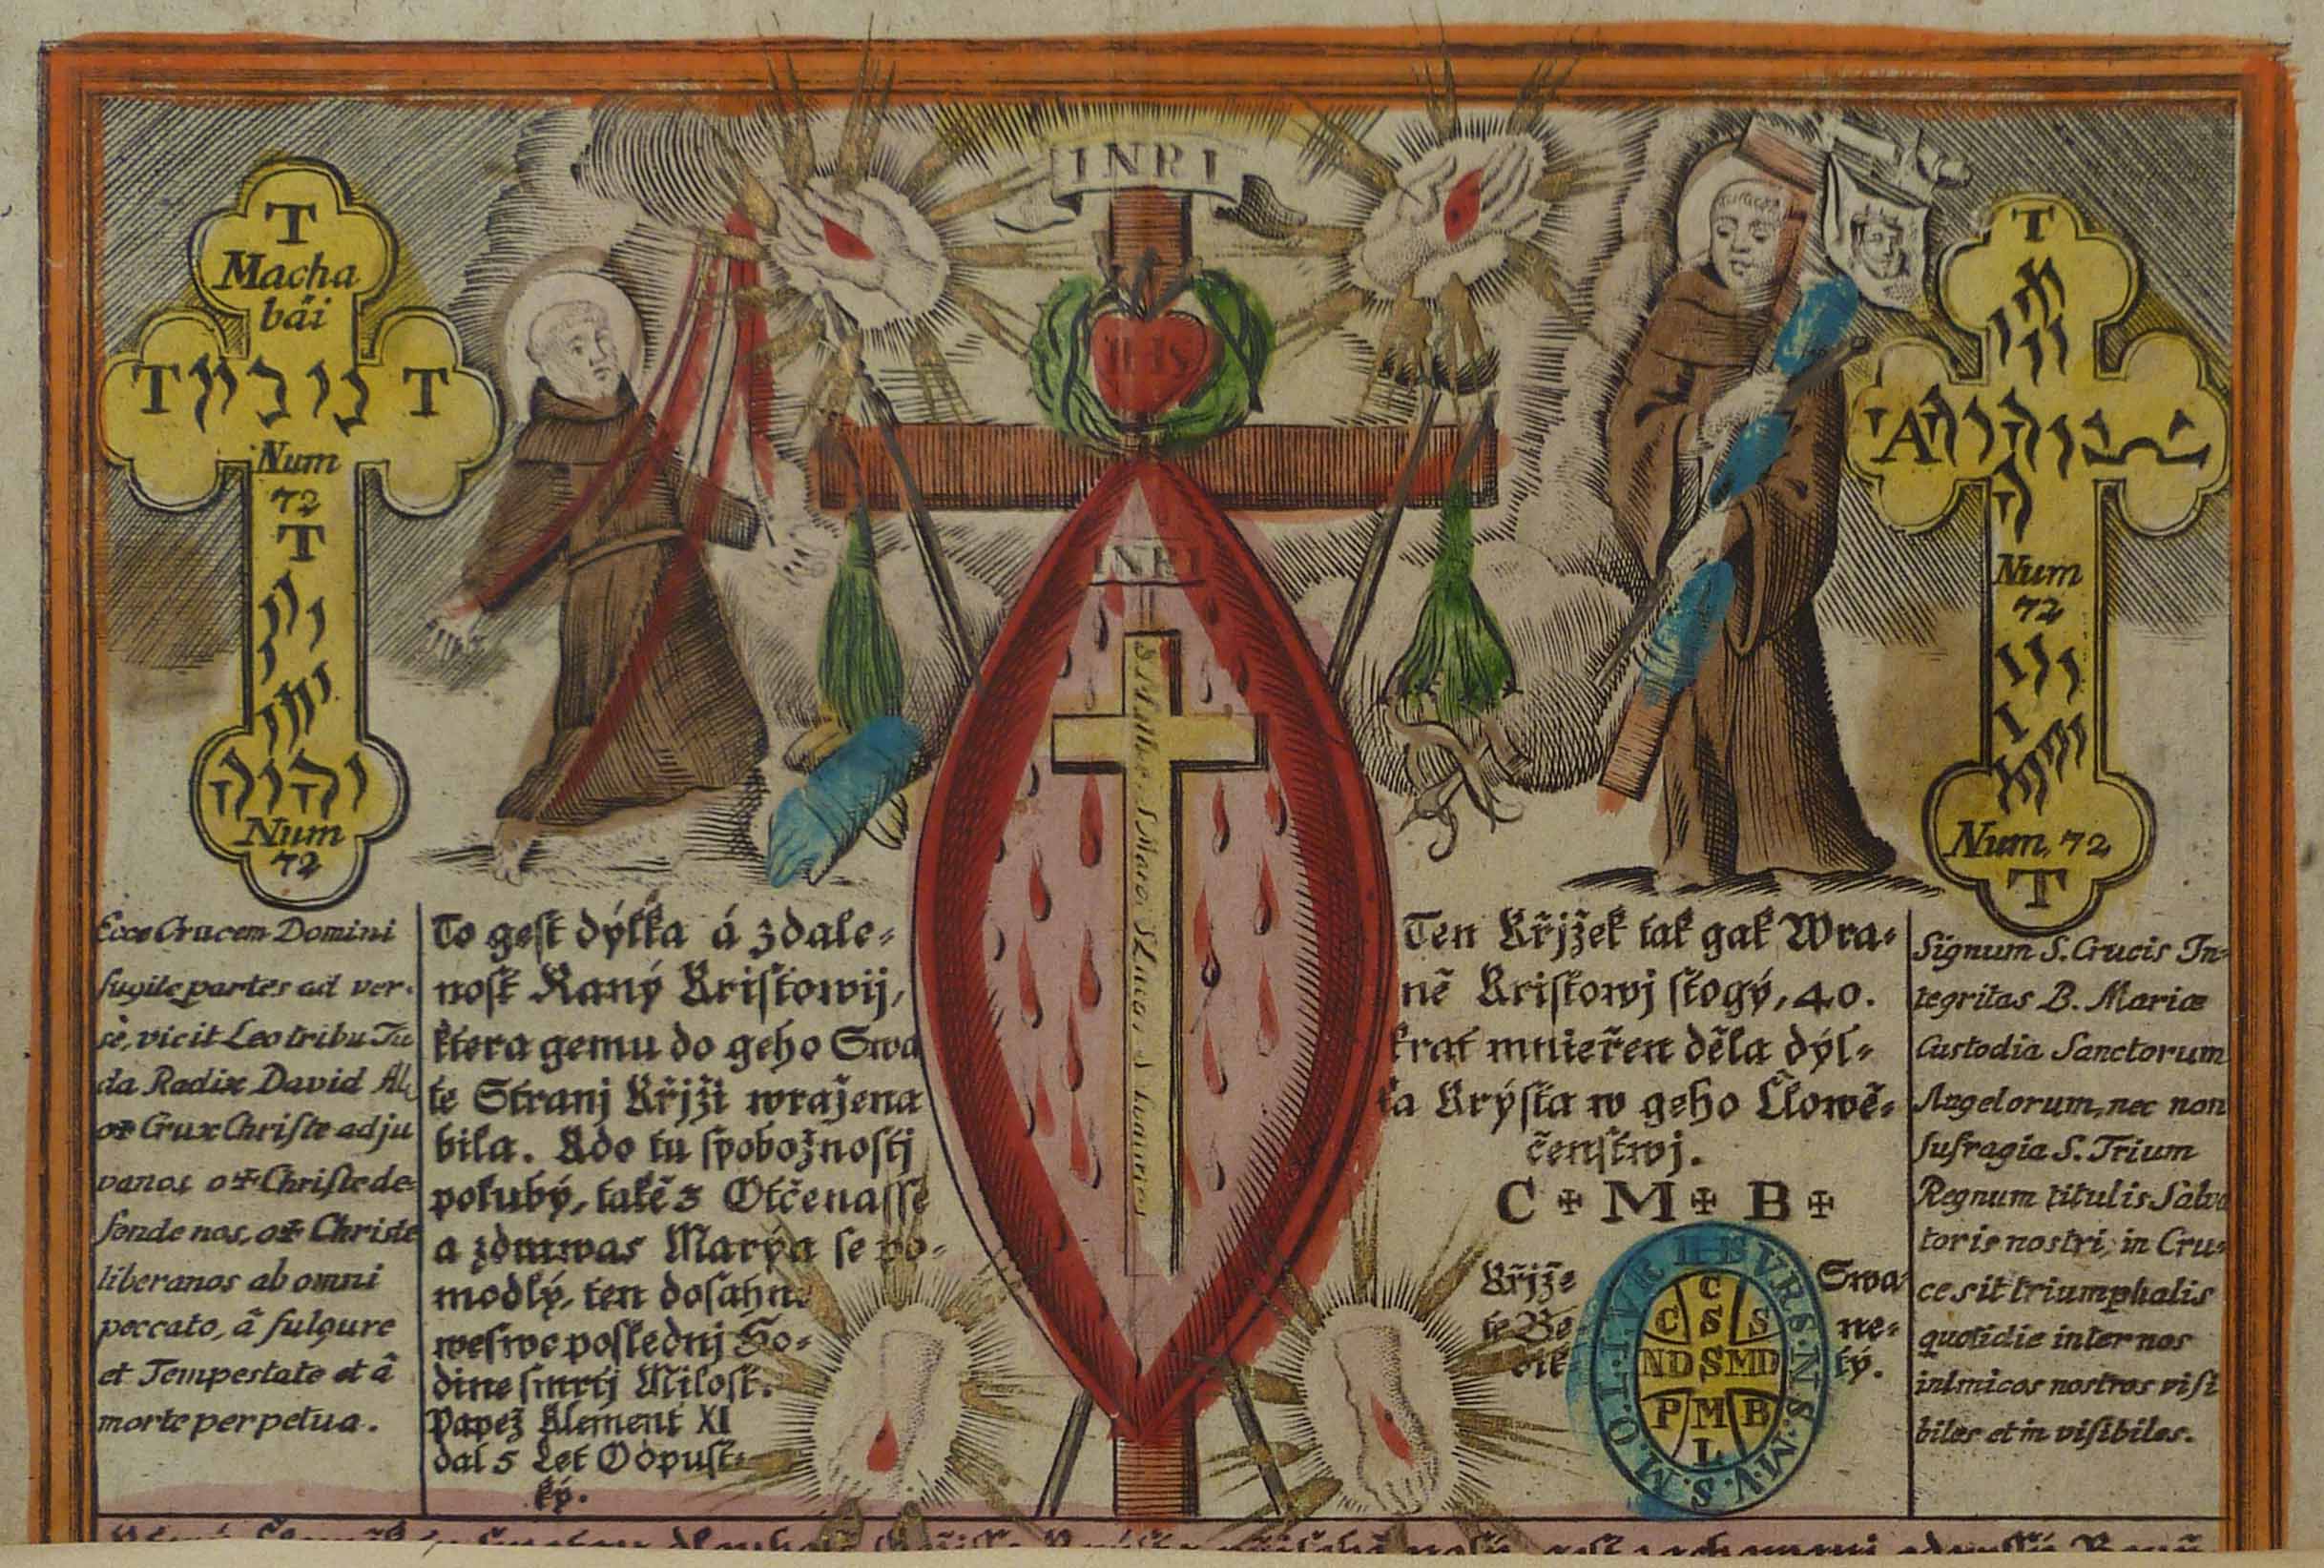 INRI
IHS
T
Macha
bäi
T T
Num
72
T
יהוה
Num
72
T
A
Num
72
Num. 72
T
INRI
S. Mathæ. S Marc. S Lucas S Joannes
Ecce Crucem Domini
fugite partes ad ver-
sè, vicit Leo tribu Ju
da Radix David All
o✝ Crux Christe adju
vanos o✝ Christe de-
fende nos, o✝ Christe
libera nos ab omni
peccato, â fulgure
et Tempestate et â
morte perpetua.
To gest dýlka á zdale-
nost Raný Kristowij,
ktera gemu do geho Swa
te Stranj Křjži wražena
bila. Kdo tu spobožnostj
polubý, také 3 Otčenasse
a zdrawas Marya se po-
modlý, ten dosahne
weswe poslednj Ho-
dine smrtj Milost.
Papež Klement XI
dal 5 Let Odpust-
ký.
Ten Křjžek tak gak Wra-
ně Kristowj stogý, 40.
krat mnieřen děla dýl-
ka Krýsta w geho Člowě-
čenstwj.
C ✠ M ✠ B ✠
Křjže Swa-
te Be ne-
dik tý.
C
C S S
ND S MD
P M B
L
V.R.S.N.S.M.V.S.M.Q.L.I.V.B
Signum S. Crucis In-
tegritas B. Mariæ
Custodia Sanctorum
Angelorum, nec non
sufragia S. Trium
Regnum titulis Salva
toris nostri, in Cru-
ce sit triumphalis
quotidie inter nos
inimicos nostros visi
biles et in visibiles.